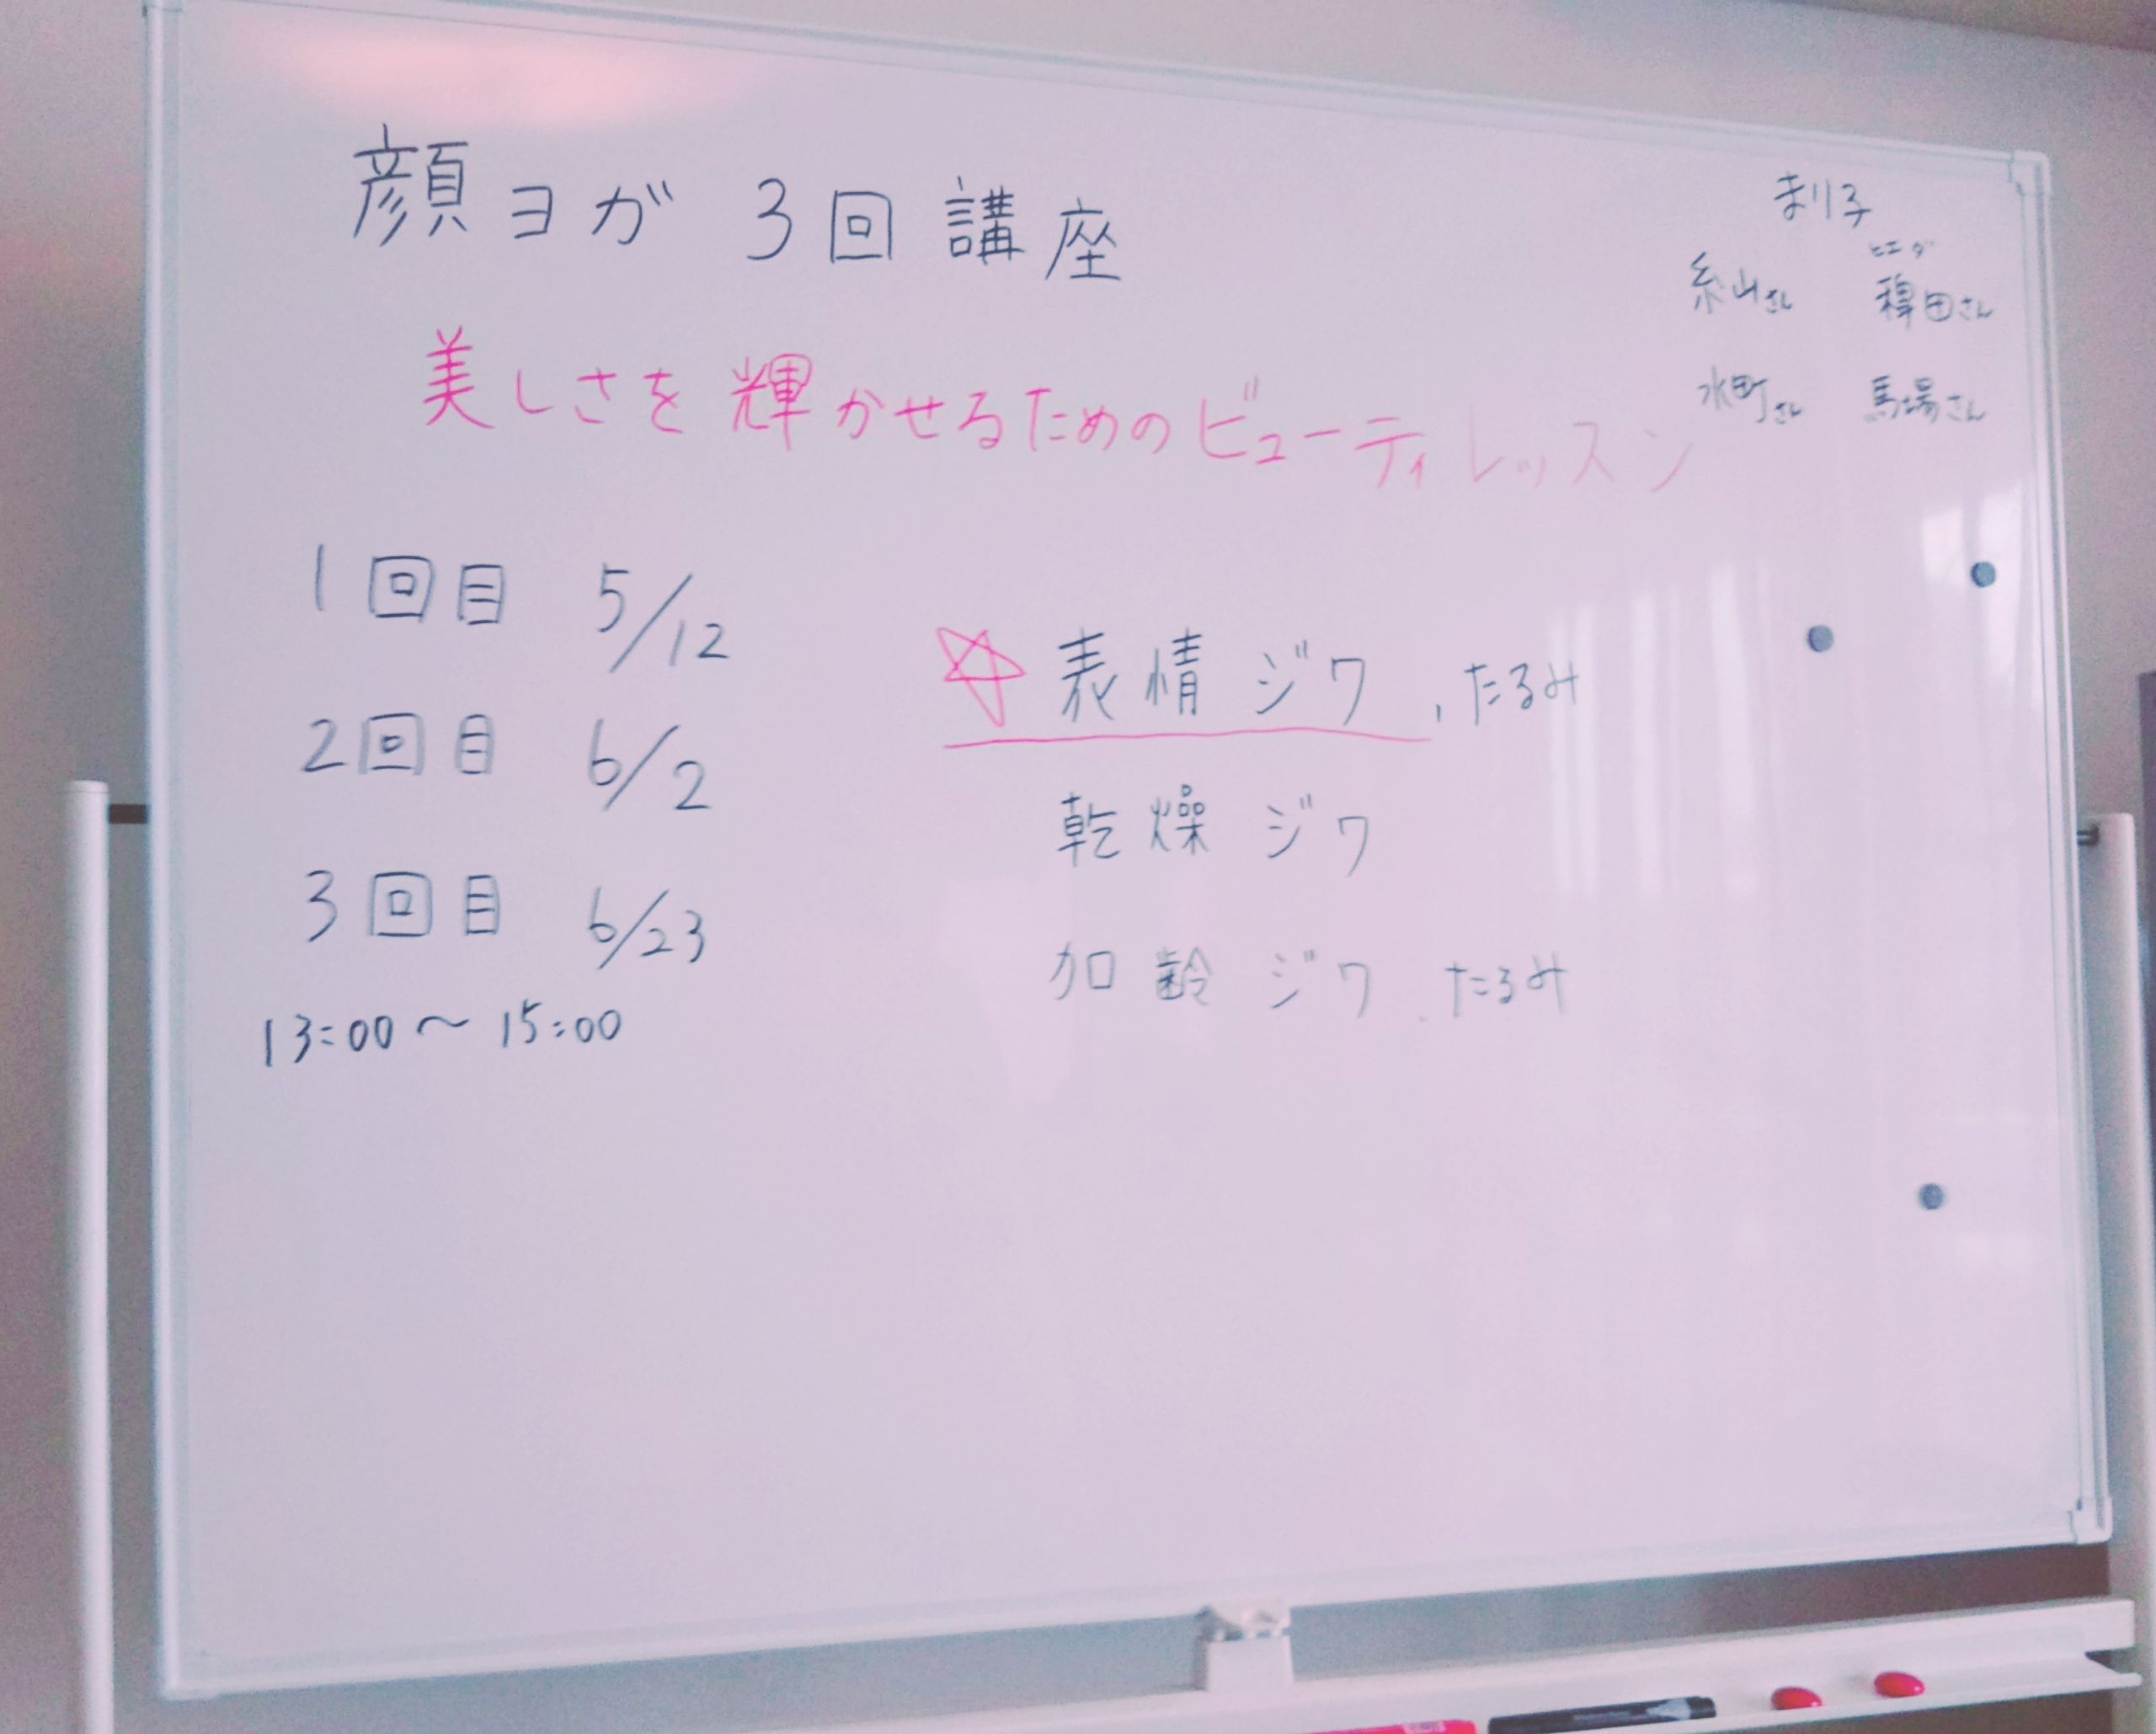 顔ヨガ 3回講座
美しさを輝かせるためのビューティレッスン
1回目 5/12
2回目 6/2
3回目 6/23
13:00～15:00
☆表情ジワ、たるみ
乾燥ジワ
加齢ジワ、たるみ
まり子
ヒエダ
糸山さん 稗田さん
水町さん 馬場さん